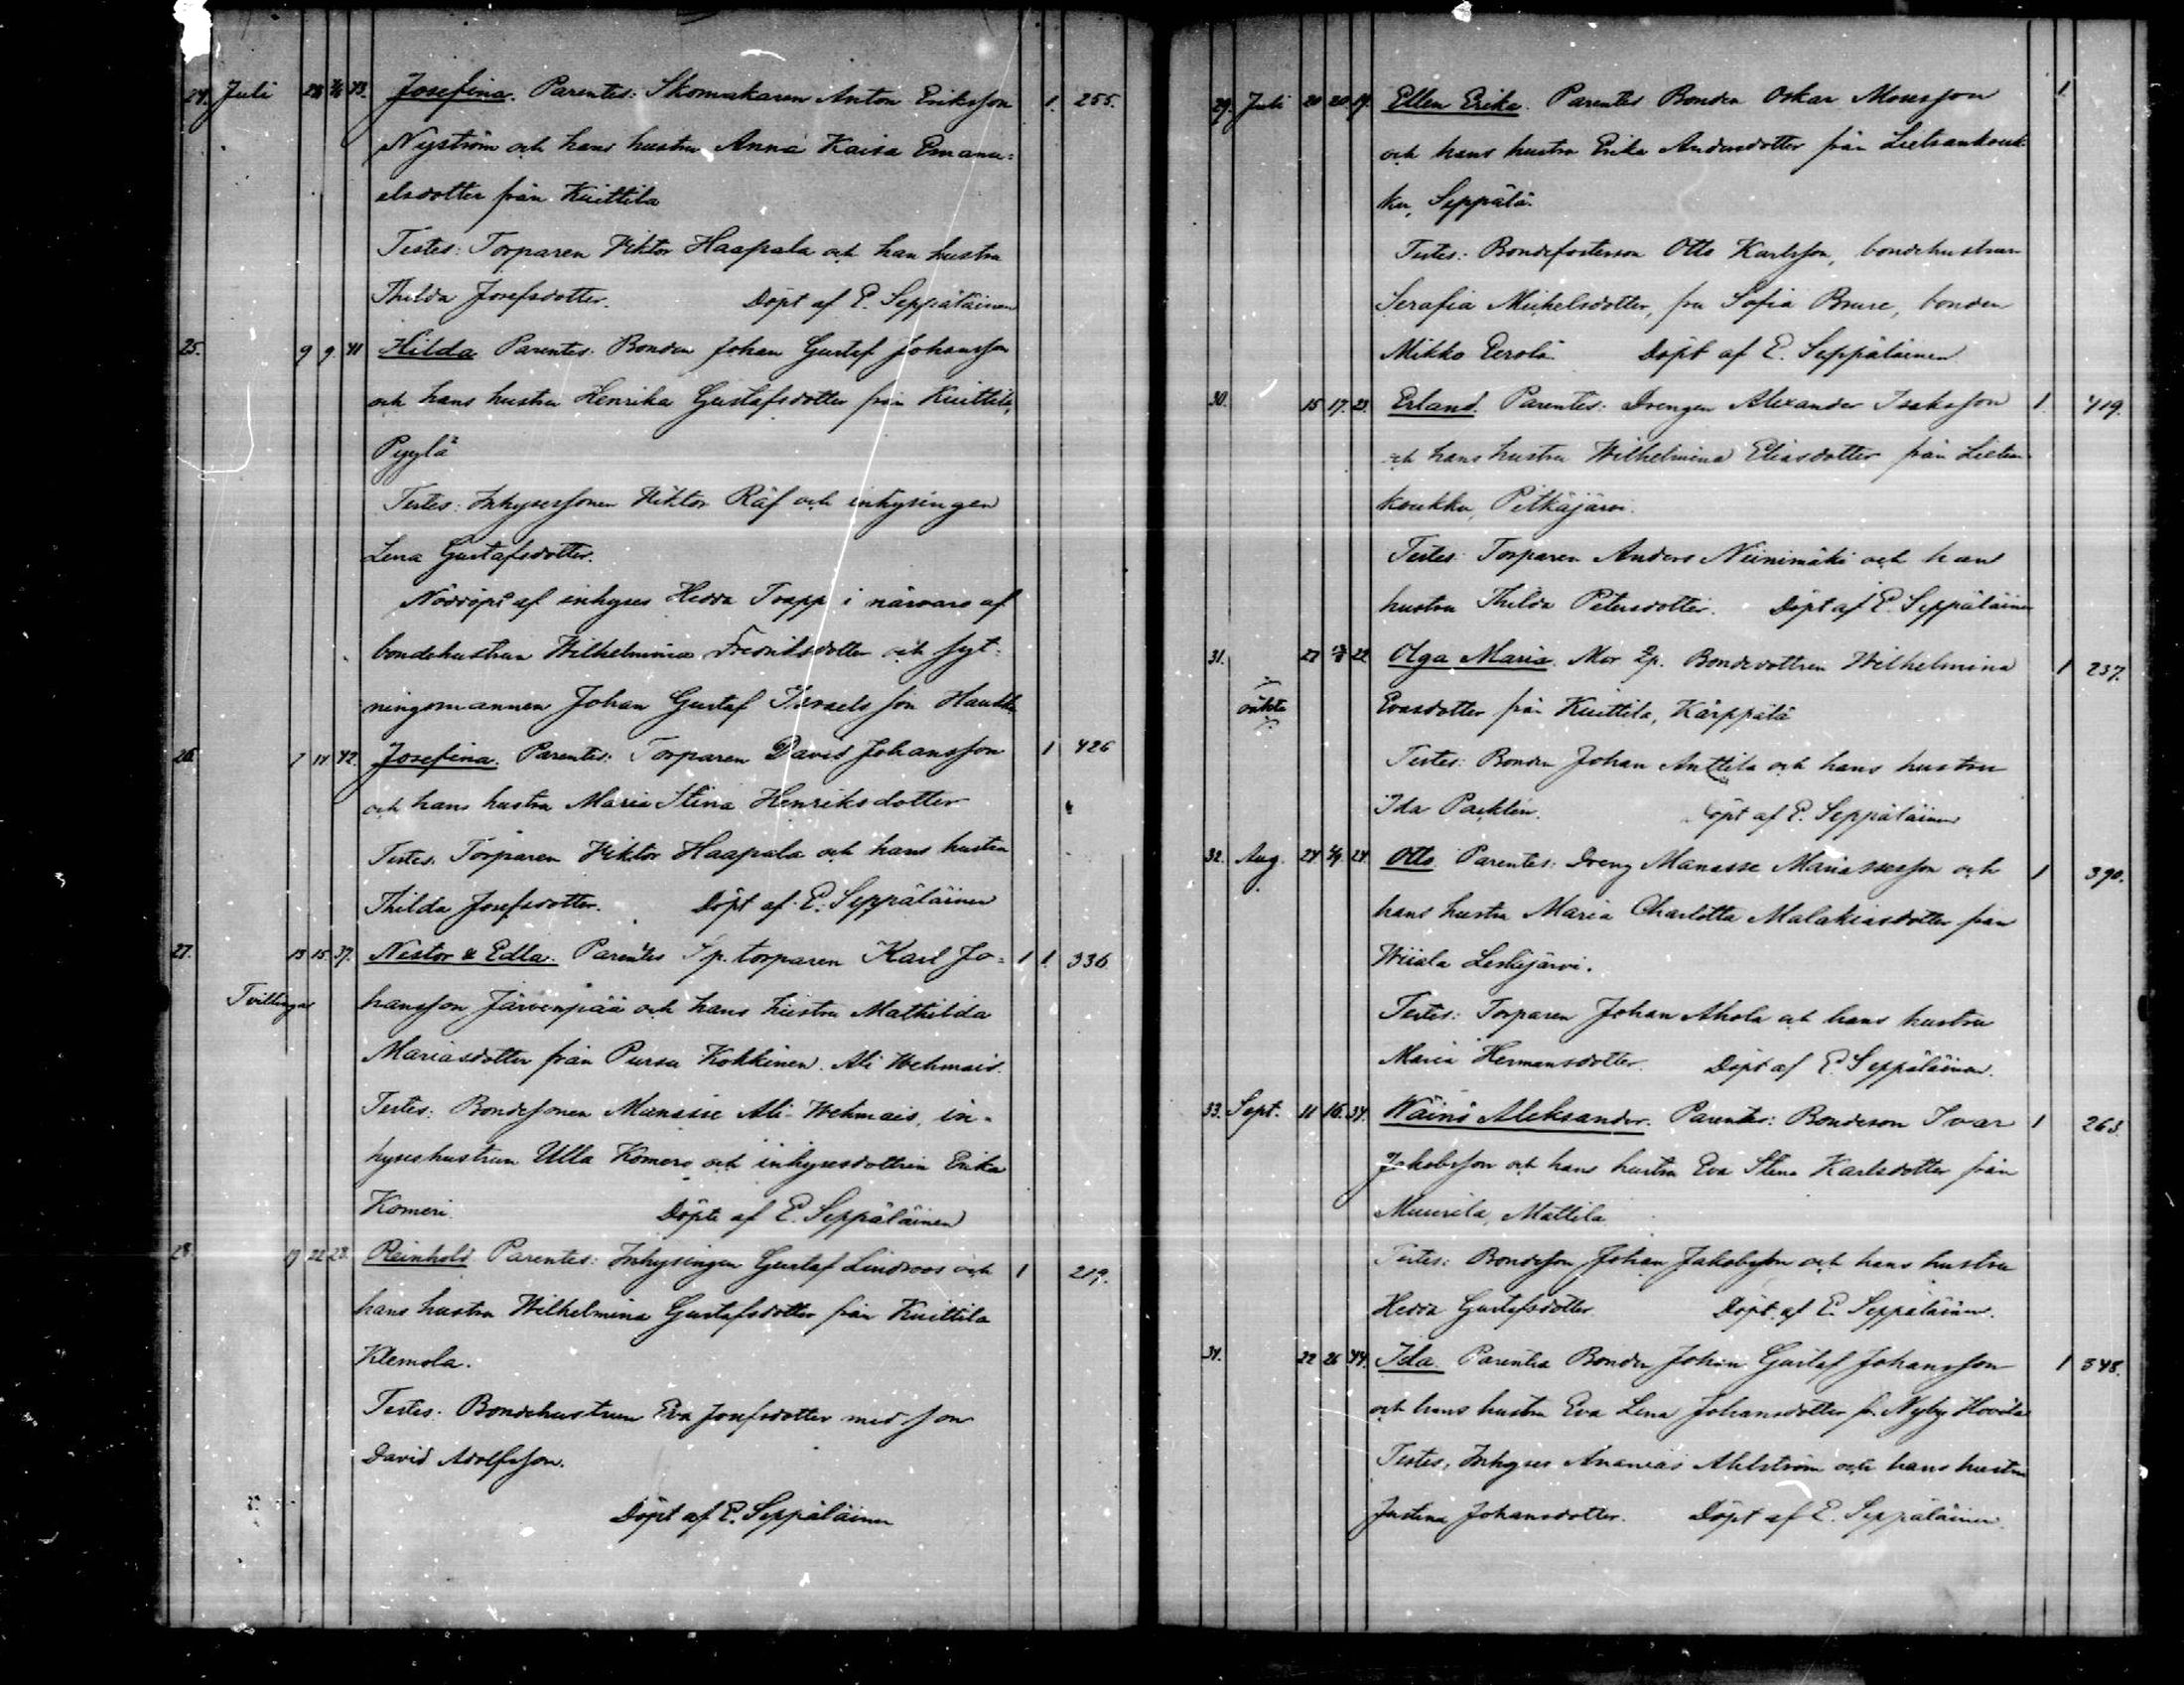 24. Juli 28 43. Josefina. Parentes: Skomakaren Anton Eriksson 1. 255.
Nyström och hans hustru Anna Kaisa Emanu-
elsdotter från Kuittila
Testes: Torparen Viktor Haapala och han hustru
Thilda Josefsdotter. Döpt af E. Seppäläinen
25. 9 9 41 Hilda Parentes: Bonden Johan Gustaf Johansson
och hans hustru Henrika Gustafsdotter från Kuittila,
Pyylä
Testes: Inhysessonen Viktor Räf och inhysingen
Lena Gustafsdotter.
Nöddöpt af inhyses Hedda Trapp i närvaro af
bondehustrun Wilhelmina Fredriksdotter och syt-
ningsmannen Johan Gustaf Israelsson
26. 7 11 42. Josefina. Parentes: Torparen David Johansson 1 426
och hans hustru Maria Stina Henriksdotter
Testes. Torparen Viktor Haapala och hans hustru
Thilda Josefsdotter. Döpt af E. Seppäläinen
27. 13 15 37. Nestor & Edla. Parentes Sp. torparen Karl Jo- 1 1. 336.
Tvillingar hansson Järvenpää och hans hustru Mathilda
Mariasdotter från Pursu Kokkinen. Ali Wehmais.
Testes: Bondesonen Manasse Ali-Wehmais, in-
hyseshustrun Ulla Komero och inhysesdottren Erika
Komeri. Döpte af E. Seppäläinen
28. 17 22 28. Reinhold Parentes: Inhysingen Gustaf Lindroos och 1 219.
hans hustru Wilhelmina Gustafsdotter från Kuittila
Klemola.
Testes. Bondehustrun Eva Josefsdotter med son
David Adolfsson.
Döpt af E. Seppäläinen
29. Juli 20 20 19. Ellen Erika. Parentes Bonden Oskar Mousson 1.
och hans hustru Erika Andersdotter från Lietsankouk-
ku, Seppälä.
Testes: Bondefosterson Otto Karlsson, bondehustrun
Serafia Mickelsdotter, fru Sofia Bruse, bonden
Mikko Eerola Döpt af E. Seppäläinen.
30. 15 17. 23. Erland. Parentes: Drengen Alexander Isaksson 1. 419.
och hans hustru Wilhelmina Eliasdotter från
koukku, Pitkäjärvi.
Testes: Torparen Anders Niinimäki och hans
hustru Thilda Petersdotter. Döpt af E. Seppäläinen
31. 27 22. Olga Maria. Mor Lp. Bondedottren Wilhelmina 1 237.
oäkta Evasdotter från Kuittila, Kärppälä
Testes: Bonden Johan Anttila och hans hustru
Ida Packlén. Döpt af E. Seppäläinen
32. Aug. 24 24. Otto Parentes: Dreng Manasse Manassesson och 1 390.
hans hustru Maria Charlotta Malakiasdotter från
Wiiala Leskijärvi.
Testes: Torparen Johan Ahola och hans hustru
Maria Hermansdotter. Döpt af E. Seppäläinen.
33. Sept. 11 16. 34. Wäinö Aleksander. Parentes: Bondeson Ivar 1 263.
Jakobsson och hans hustru Eva Stina Karlsdotter från
Muurila, Mattila
Testes: Bondeson Johan Jakobsson och hans hustru
Hedda Gustafsdotter. Döpt af E. Seppäläinen.
34. 22 26 44. Ida. Parentes Bonden Johan Gustaf Johansson 1 348.
och hans hustru Eva Lena Johansdotter fr. Nyby Hovila
Testes, Inhyses Ananias Ahlström och hans hustru
Justina Johansdotter. Döpt af E. Seppäläinen.